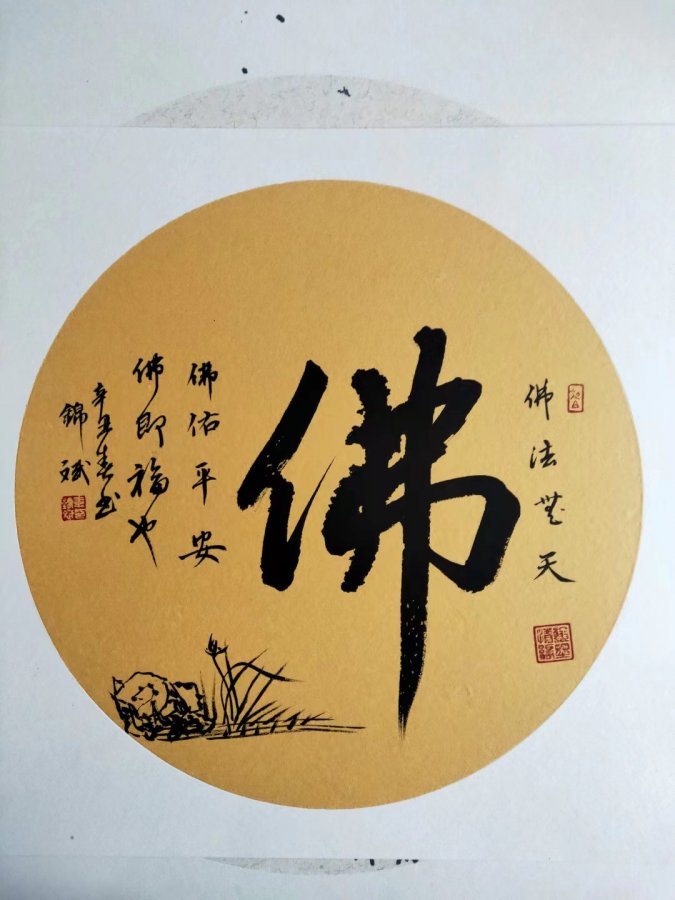 佛法無天
佛
佛佑平安
佛即福也
辛丑春书
錦斌